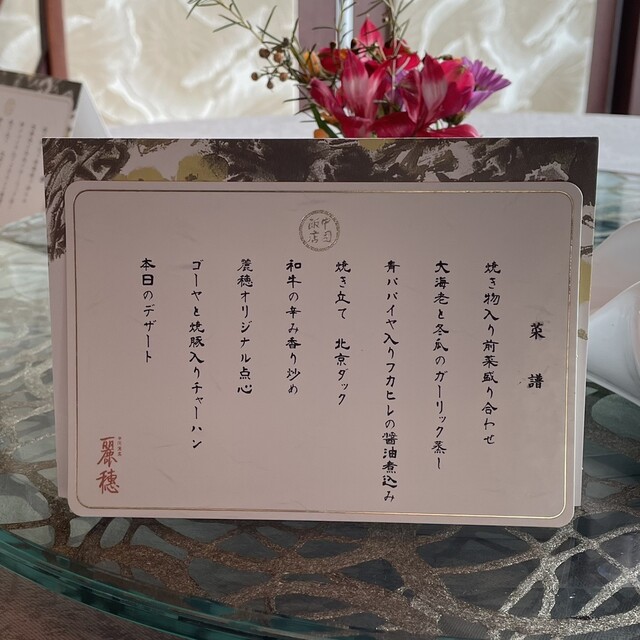 中国飯店
菜譜
焼き物入り前菜盛り合わせ
大海老と冬瓜のガーリック蒸し
青パパイヤ入りフカヒレの醤油煮込み
焼き立て 北京ダック
和牛の辛み香り炒め
麗穂オリジナル点心
ゴーヤと焼豚入りチャーハン
本日のデザート
麗穂